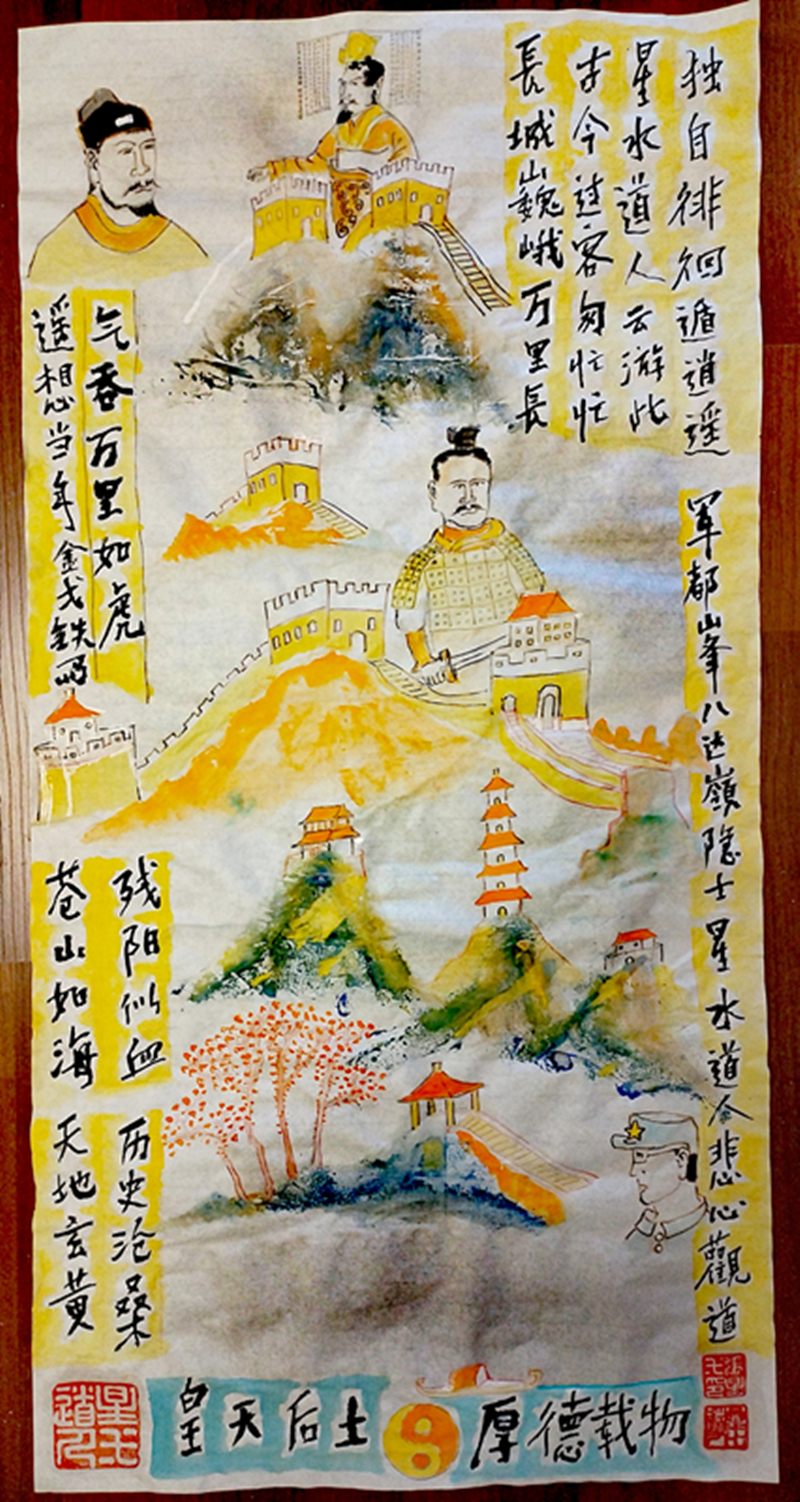 長城巍峨万里長
古今过客匆忙忙
星水道人云游此
独自徘徊遁逍遥
遥想当年金戈铁马
气吞万里如虎
军都山峯八达嶺隐士星水道人悲心觀道
苍山如海
残阳似血
天地玄黄
历史沧桑
皇天后土
厚德载物
星水道人